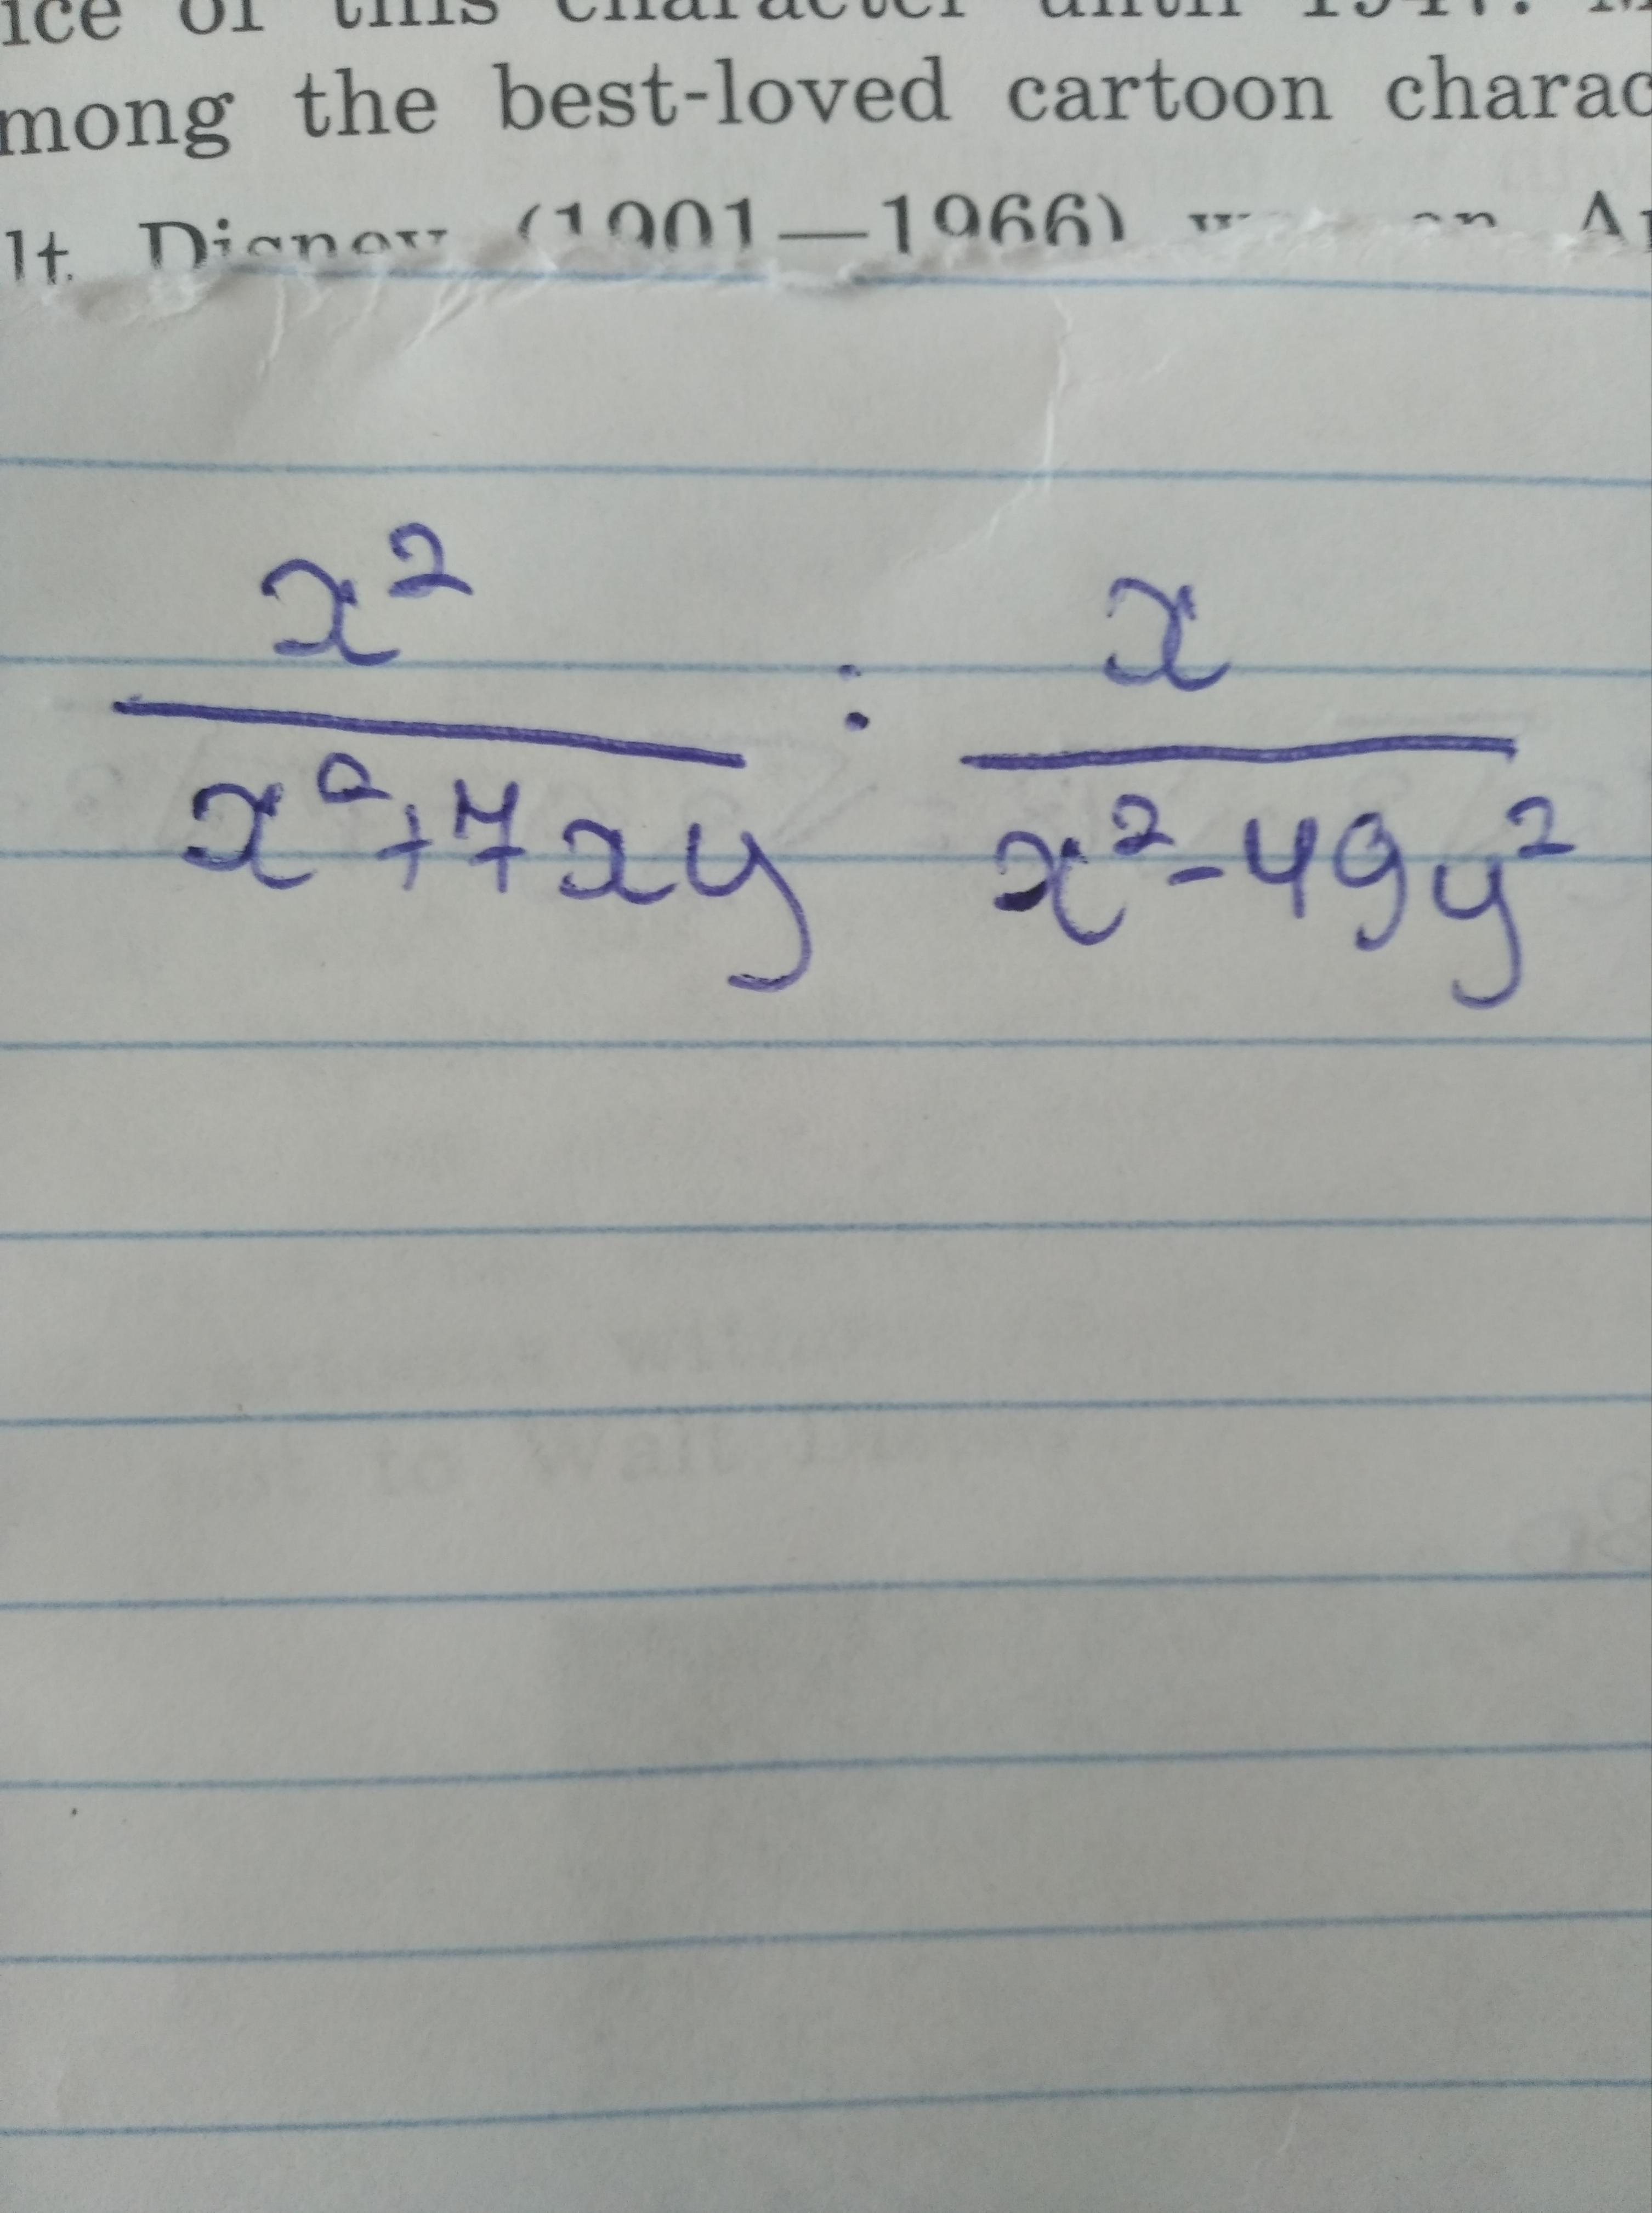 ice of this character until 1947. M
mong the best-loved cartoon charac
lt Disney (1901—1966) w an A
x² : x
x²+7xy x²-49y²